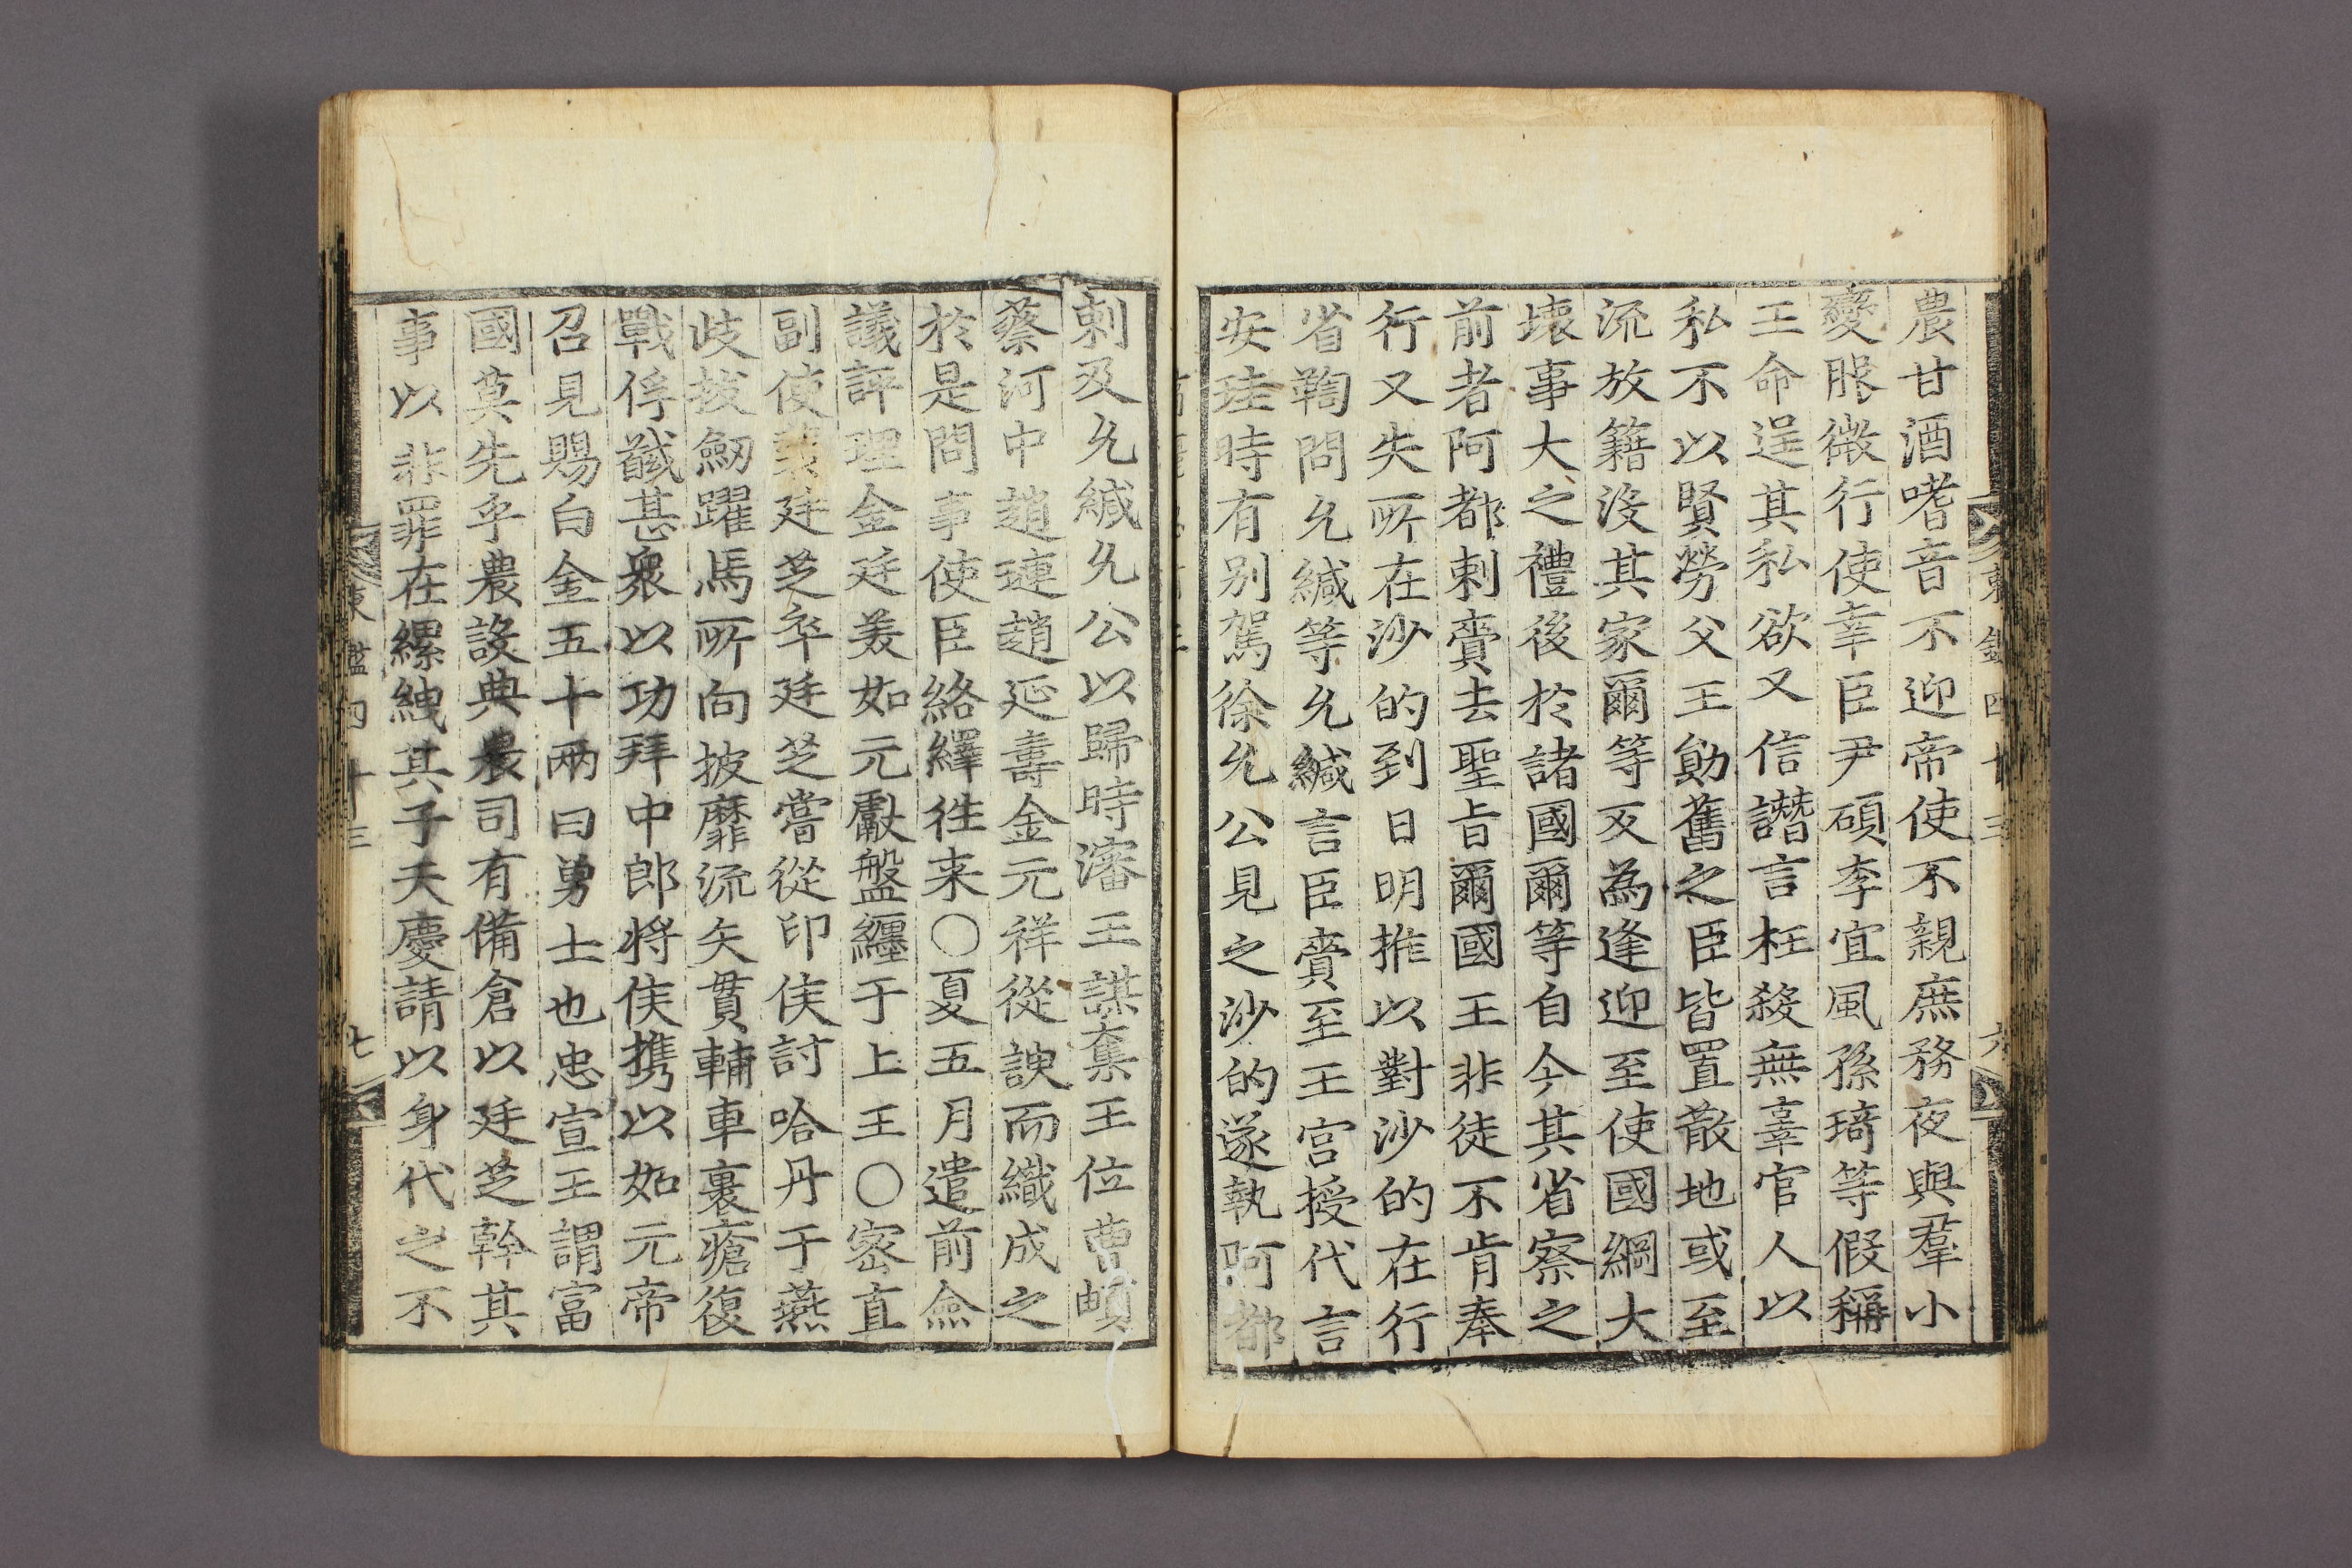 農甘酒嗜音不迎帝使不親庶務夜與羣小
變服微行使幸臣尹碩李宜風孫琦等假稱
王命逞其私欲又信譖言枉殺無辜官人以
私不以賢勞父王勛舊之臣皆置散地或至
流放籍沒其家爾等又為逢迎至使國綱大
壞事大之禮後於諸國爾等自今其省察之
前者阿都剌賫去聖旨爾國王非徒不肯奉
行又失所在沙的到日明推以對沙的在行
省鞫問允緘等允緘言臣賫至王宮授代言
安珪時有別駕徐允公見之沙的遂執阿都
剌及允緘允公以歸時瀋王謀奪王位曹頔
蔡河中趙璉趙延壽金元祥從諛而織成之
於是問事使臣絡繹徃来〇夏五月遣前僉
議評理金廷美如元獻盤纏于上王〇密直
副使裴廷芝卒廷芝嘗從印侯討哈丹于燕
歧拔劒躍馬所向披靡流矢貫輔車裹瘡復
戰俘馘甚衆以功拜中郎將侯携以如元帝
召見賜白金五十兩曰勇士也忠宣王謂富
國莫先乎農設典農司有備倉以廷芝幹其
事以非罪在縲絏其子天慶請以身代之不